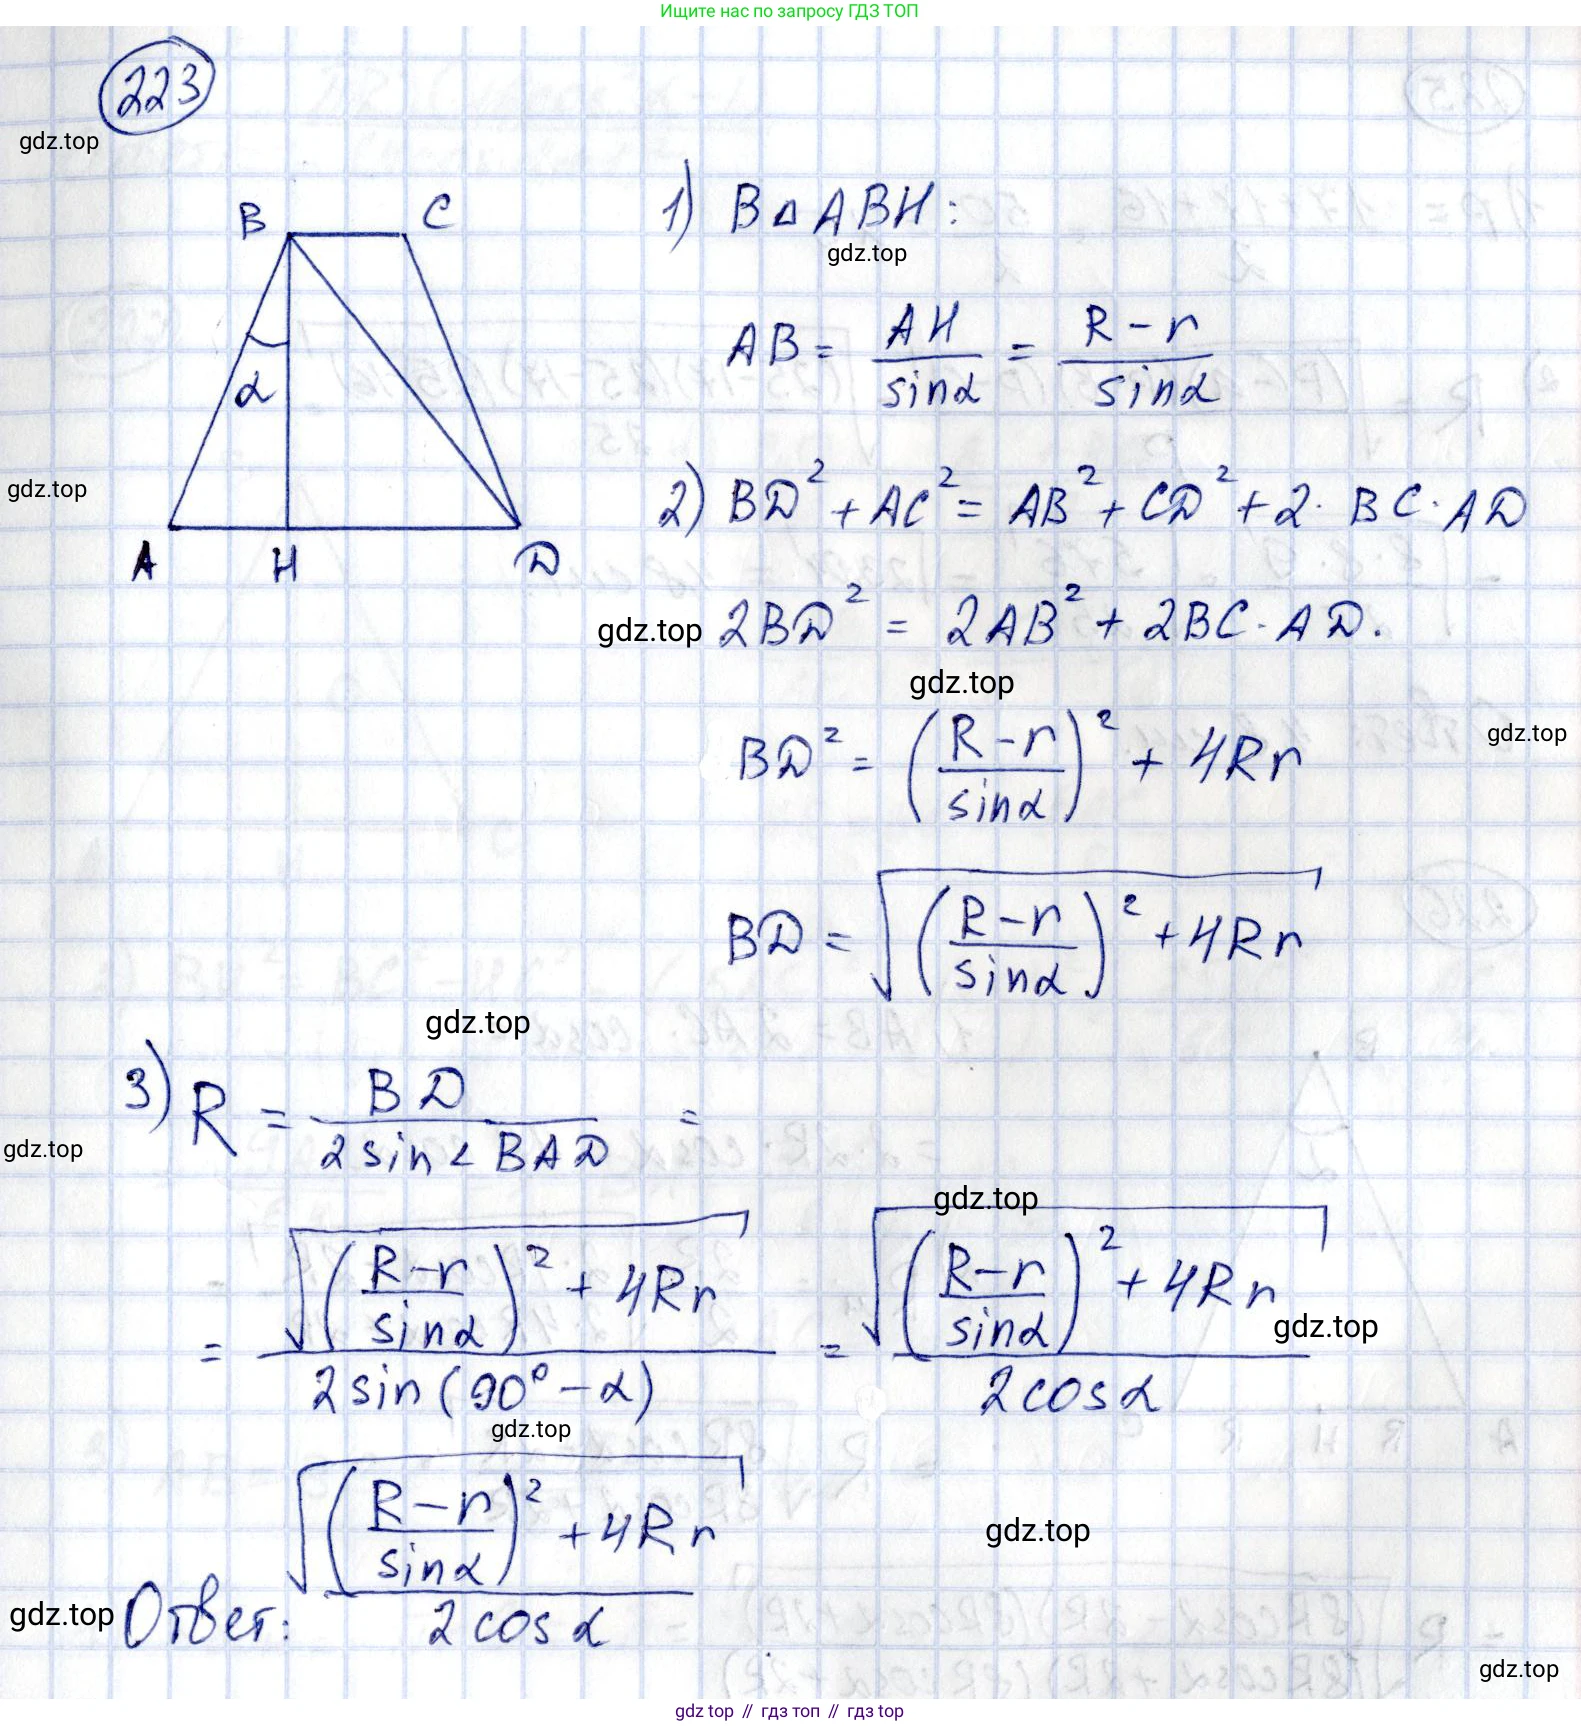 Ищите нас по запросу ГДЗ ТОП
223
gdz.top
B C
α
A H D
gdz.top
1) В △ ABH:
gdz.top
AB = AH/sinα = (R-r)/sinα
2) BD² + AC² = AB² + CD² + 2·BC·AD
gdz.top 2BD² = 2AB² + 2BC·AD.
gdz.top
BD² = ((R-r)/sinα)² + 4Rr
gdz.top
BD = √(((R-r)/sinα)² + 4Rr)
gdz.top
3) R = BD/(2sin∠BAD) =
gdz.top
gdz.top
= √(((R-r)/sinα)² + 4Rr)/(2sin(90°-α)) = √(((R-r)/sinα)² + 4Rr)/(2cosα)
gdz.top
gdz.top
gdz.top
Ответ: √(((R-r)/sinα)² + 4Rr)/(2cosα)
gdz.top
gdz.top
gdz.top // гдз топ // gdz top